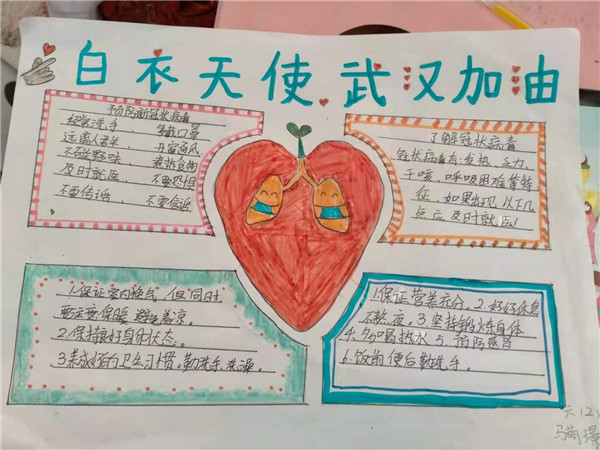 白衣天使武汉加油
预防新冠状病毒
经常洗手、多戴口罩
远离人群、开窗通风
不碰野味、煮熟食物
及时就医、不要恐惧
不要传谣、不要信谣
了解冠状病毒
冠状病毒有:发热、乏力、
干咳、呼吸困难等特
征,如果出现以下几
点应及时就医!
1.保证室内换气,但同时
要注意保暖 避免着凉。
2.保持良好身体状态。
3养成好的卫生习惯,勤洗手、洗澡。
1.保证营养充分,2.好好休息
不熬夜。3.坚持锻炼身体
4.多喝热水 5.预防感冒
6.饭前便后勤洗手。
六(2)